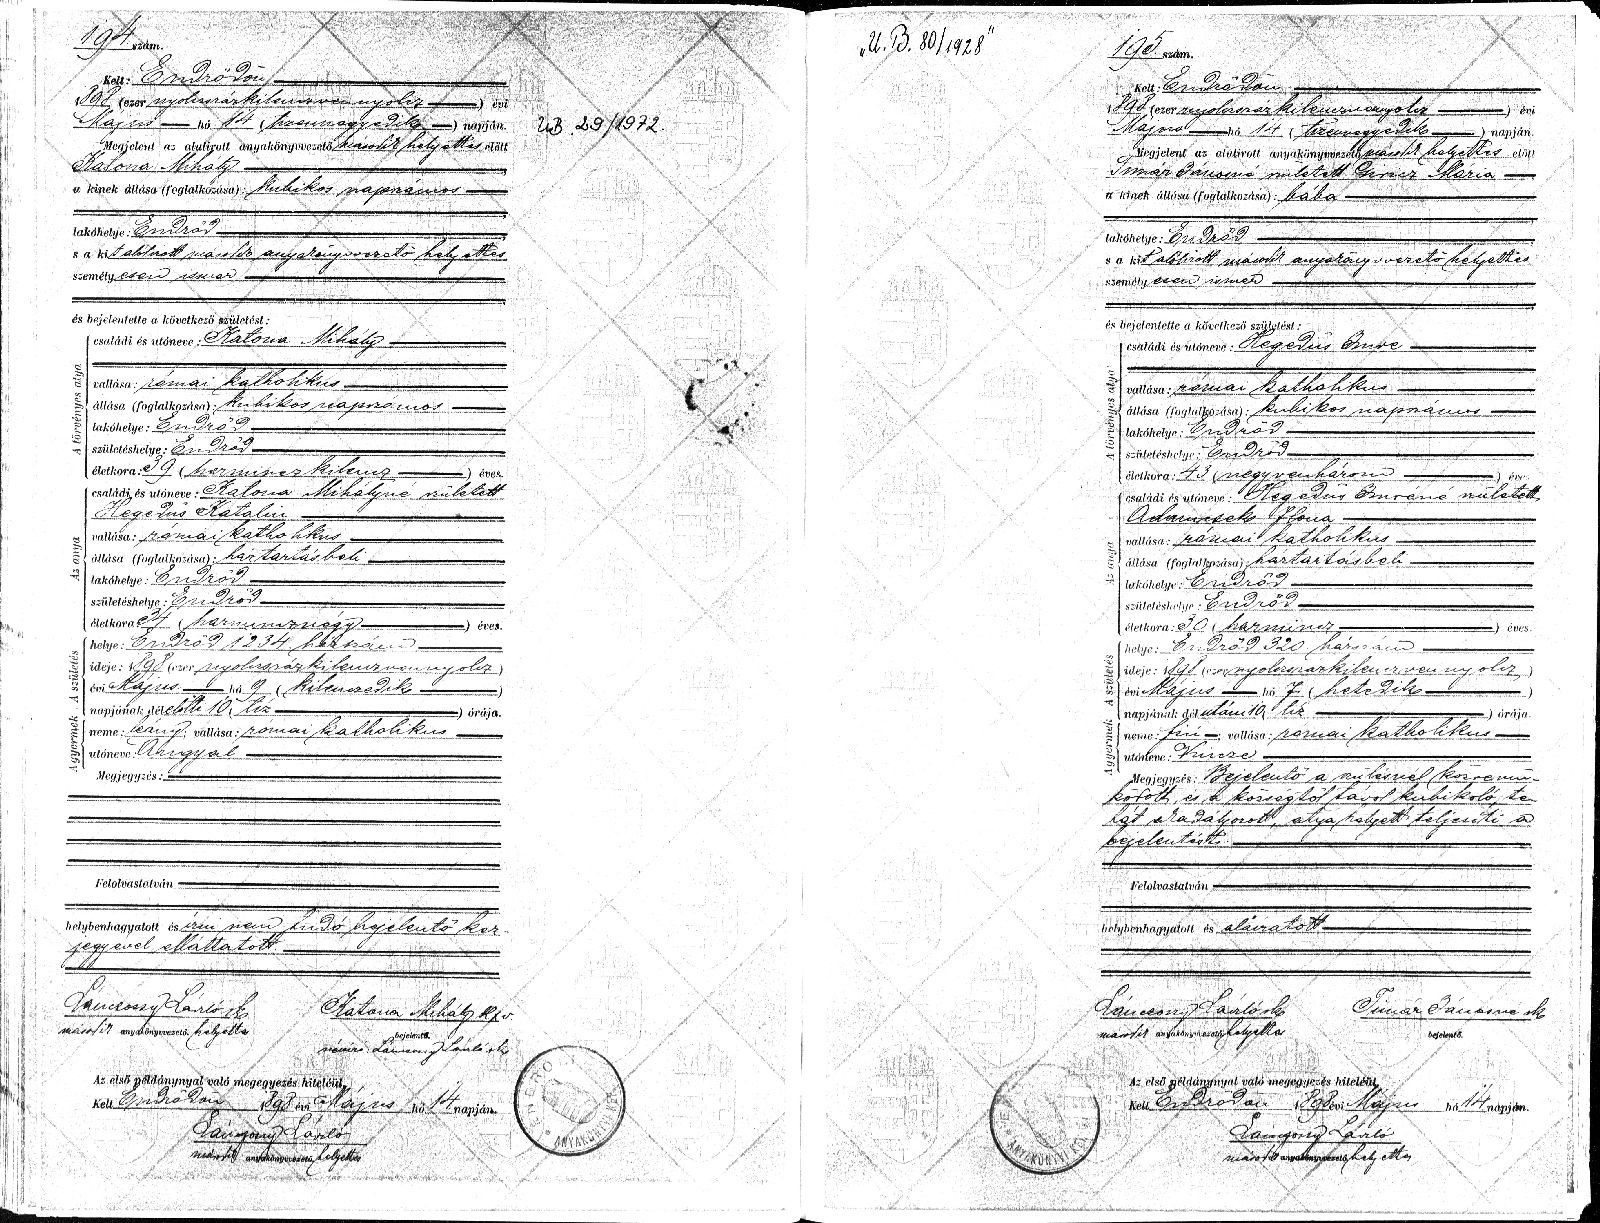 194 szám.
Kelt: Endrődön
1898 (ezer nyolczszázkilenczvennyolcz) évi
Május hó 14 (tizennegyedik) napján.
UB. 29/1972.
Megjelent az alulirott anyakönyvvezető másodi helyettes előtt
Katona Mihály
a kinek állása (foglalkozása): kubikos napszámos
lakóhelye: Endrőd
s a kit alólirott másodi anyakönyvvezető helyettes
személyesen ismer
és bejelentette a következő születést:
A törvényes atya
családi és utóneve: Katona Mihály
vallása: római katholikus
állása (foglalkozása): kubikos napszámos
lakóhelye: Endrőd
születéshelye: Endrőd
életkora: 39 (harminczkilencz) éves.
Az anya
családi és utóneve: Katona Mihályné született
Hegedüs Katalin
vallása: római katholikus
állása (foglalkozása): háztartásbeli
lakóhelye: Endrőd
születéshelye: Endrőd
életkora 34 (harmincznégy) éves.
A születés
helye: Endrőd 1234 házszám
ideje: 1898 (ezer nyolczszázkilenczvennyolcz)
évi Május hó 9 (kilenczedik)
napjának délelőtti 10 (tiz) órája.
A gyermek
neme: leány; vallása: római katholikus
utóneve: Angyal
Megjegyzés:
Felolvastatván
helybenhagyatott és írni nem tudó bejelentő kéz-
jegyével elláttatott.
Lánczossy László sk
másodi anyakönyvvezető helyettes
Katona Mihály
bejelentő.
névíró Lánczossy László sk
Az első példánynyal való megegyezés hiteléül,
Kelt Endrődön 1898 évi Május hó 14 napján.
Lánczossy László
másodi anyakönyvvezető helyettes
"U. B. 80/1928"
195 szám.
Kelt: Endrődön
1898 (ezer nyolczszázkilenczvennyolcz) évi
Május hó 14 (tizennegyedik) napján.
Megjelent az alulirott anyakönyvvezető másodi helyettes előtt
Timár Jánosné született Mária
a kinek állása (foglalkozása): bába
lakóhelye: Endrőd
s a kit alólirott másodi anyakönyvvezető helyettes
személyesen ismer
és bejelentette a következő születést:
A törvényes atya
családi és utóneve: Hegedüs Imre
vallása: római katholikus
állása (foglalkozása): kubikos napszámos
lakóhelye: Endrőd
születéshelye: Endrőd
életkora: 43 (negyvenhárom) éves
Az anya
családi és utóneve: Hegedüs Imréné született
Adamcsek Ilona
vallása: római katholikus
állása (foglalkozása) háztartásbeli
lakóhelye: Endrőd
születéshelye: Endrőd
életkora: 30 (harmincz) éves.
A születés
helye: Endrőd 320 házszám
ideje: 1898 (ezer nyolczszázkilenczvennyolcz)
évi Május hó 7 (hetedik)
napjának délutáni 10 (tiz) órája.
A gyermek
neme: fiu; vallása: római katholikus
utóneve: Vincze
Megjegyzés: Bejelentő a szülésnél közremü-
ködött, és a községtől távol kubikoló, te-
hát akadályozott, atya helyett teljesiti a
bejelentést.
Felolvastatván
helybenhagyatott és aláiratott
Lánczossy László sk
másodi anyakönyvvezető helyettes
Timár Jánosné sk
bejelentő.
Az első példánynyal való megegyezés hiteléül,
Kelt Endrődön 1898 évi Május hó 14 napján.
Lánczossy László
másodi anyakönyvvezető helyettes